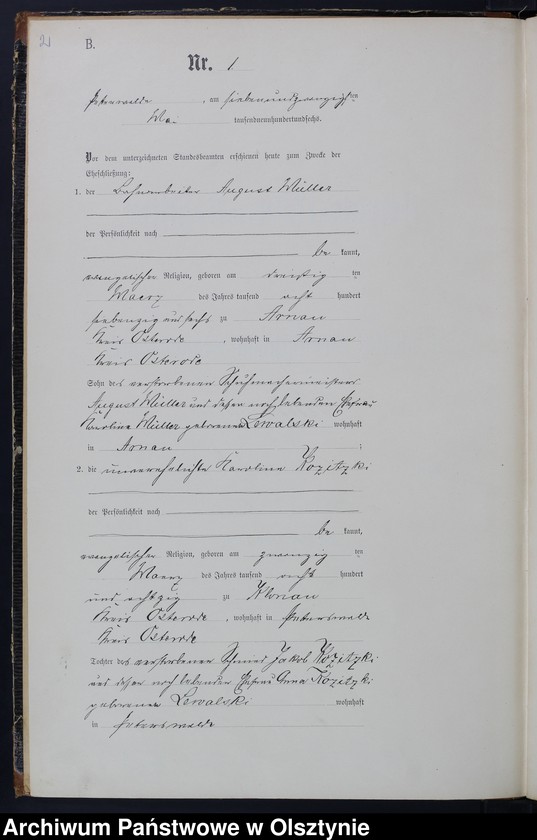 21
B.
Nr. 1
Peterswalde, am siebenundzwanzigsten
Mai tausendneunhundertundsechs.
Vor dem unterzeichneten Standesbeamten erschienen heute zum Zwecke der
Eheschließung:
1. der Bahnarbeiter August Müller
der Persönlichkeit nach
be kannt,
evangelischer Religion, geboren am dreißig ten
Maerz des Jahres tausend acht hundert
siebenzig und sechs zu Arnau
Kreis Osterode, wohnhaft in Arnau
Kreis Osterode
Sohn des verstorbenen Schuhmachermeisters
August Müller und dessen noch lebenden Ehefrau
Karoline Müller geborenen Lewalski wohnhaft
in Arnau
2. die unverehelichte Karoline Kozitzki
der Persönlichkeit nach
be kannt,
evangelischer Religion, geboren am zwanzig ten
Maerz des Jahres tausend acht hundert
und achtzig zu
Kreis Osterode, wohnhaft in Peterswalde
Kreis Osterode
Tochter des verstorbenen Jakob Kozitzki
und dessen noch lebenden Ehefrau Anna Kozitzki
geborenen Lewalski wohnhaft
in Peterswalde
Archiwum Państwowe w Olsztynie